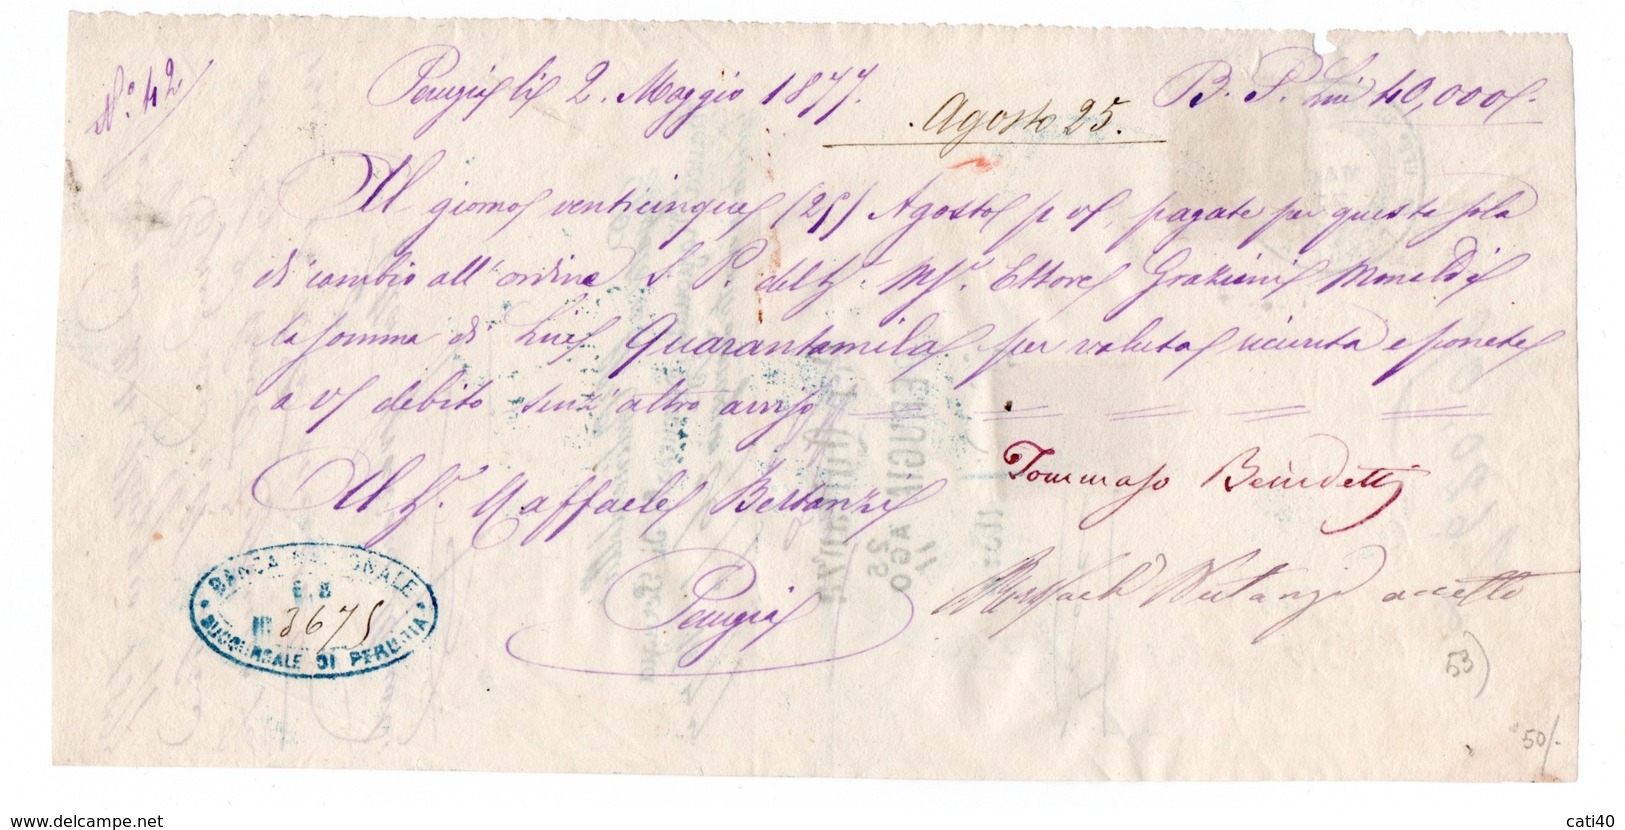 N.° 42
Perugia li 2. Maggio 1877. B. P. Lire 40,000.
Agosto 25.
Al giorno venticinque (25) Agosto p v, pagate per questa sola
di cambio all'ordine S. P. del Sr. Mse. Ettore Graziani Monaldi
la somma di Lire Quarantamila per valuta ricevuta e ponete
a vs debito senz'altro avviso
Tommaso Benedetti
Al Sr. Raffaele Bertanzi
Perugia
Raffaele Bertanzi accetto
BANCA NAZIONALE
N. 3675
SUCCURSALE DI PERUGIA
53)
50/-
www.delcampe.net
cati40